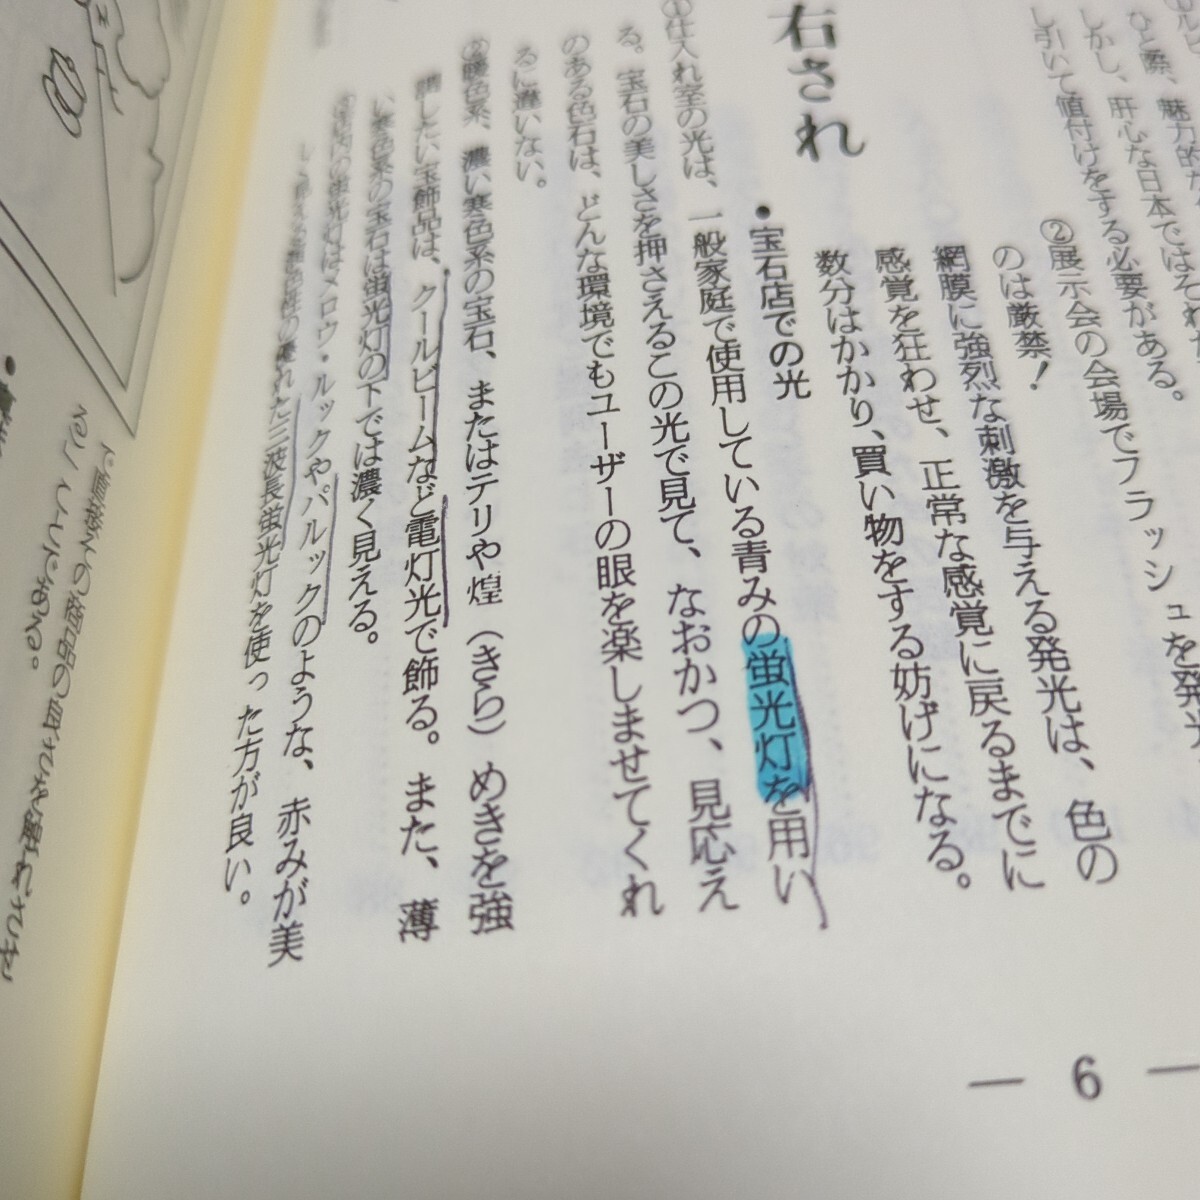 ひと際、魅力的な
しかし、肝心な日本ではそれ
し引いて値付けをする必要がある。
②展示会の会場でフラッシュを発光
のは厳禁!
網膜に強烈な刺激を与える発光は、色の
感覚を狂わせ、正常な感覚に戻るまでに
数分はかかり、買い物をする妨げになる。
右され
●宝石店での光
①仕入れ室の光は、一般家庭で使用している青みの蛍光灯を用い
る。宝石の美しさを押さえるこの光で見て、なおかつ、見応え
のある色石は、どんな環境でもユーザーの眼を楽しませてくれ
るに違いない。
②暖色系、濃い寒色系の宝石、またはテリや煌(きら)めきを強
調したい宝飾品は、クールビームなど電灯光で飾る。また、薄
い寒色系の宝石は蛍光灯の下では濃く見える。
③店内の蛍光灯はメロウ・ルックやパルックのような、赤みが美
しく映える演色性の優れた三波長蛍光灯を使った方が良い。
— 6 —
ることである。